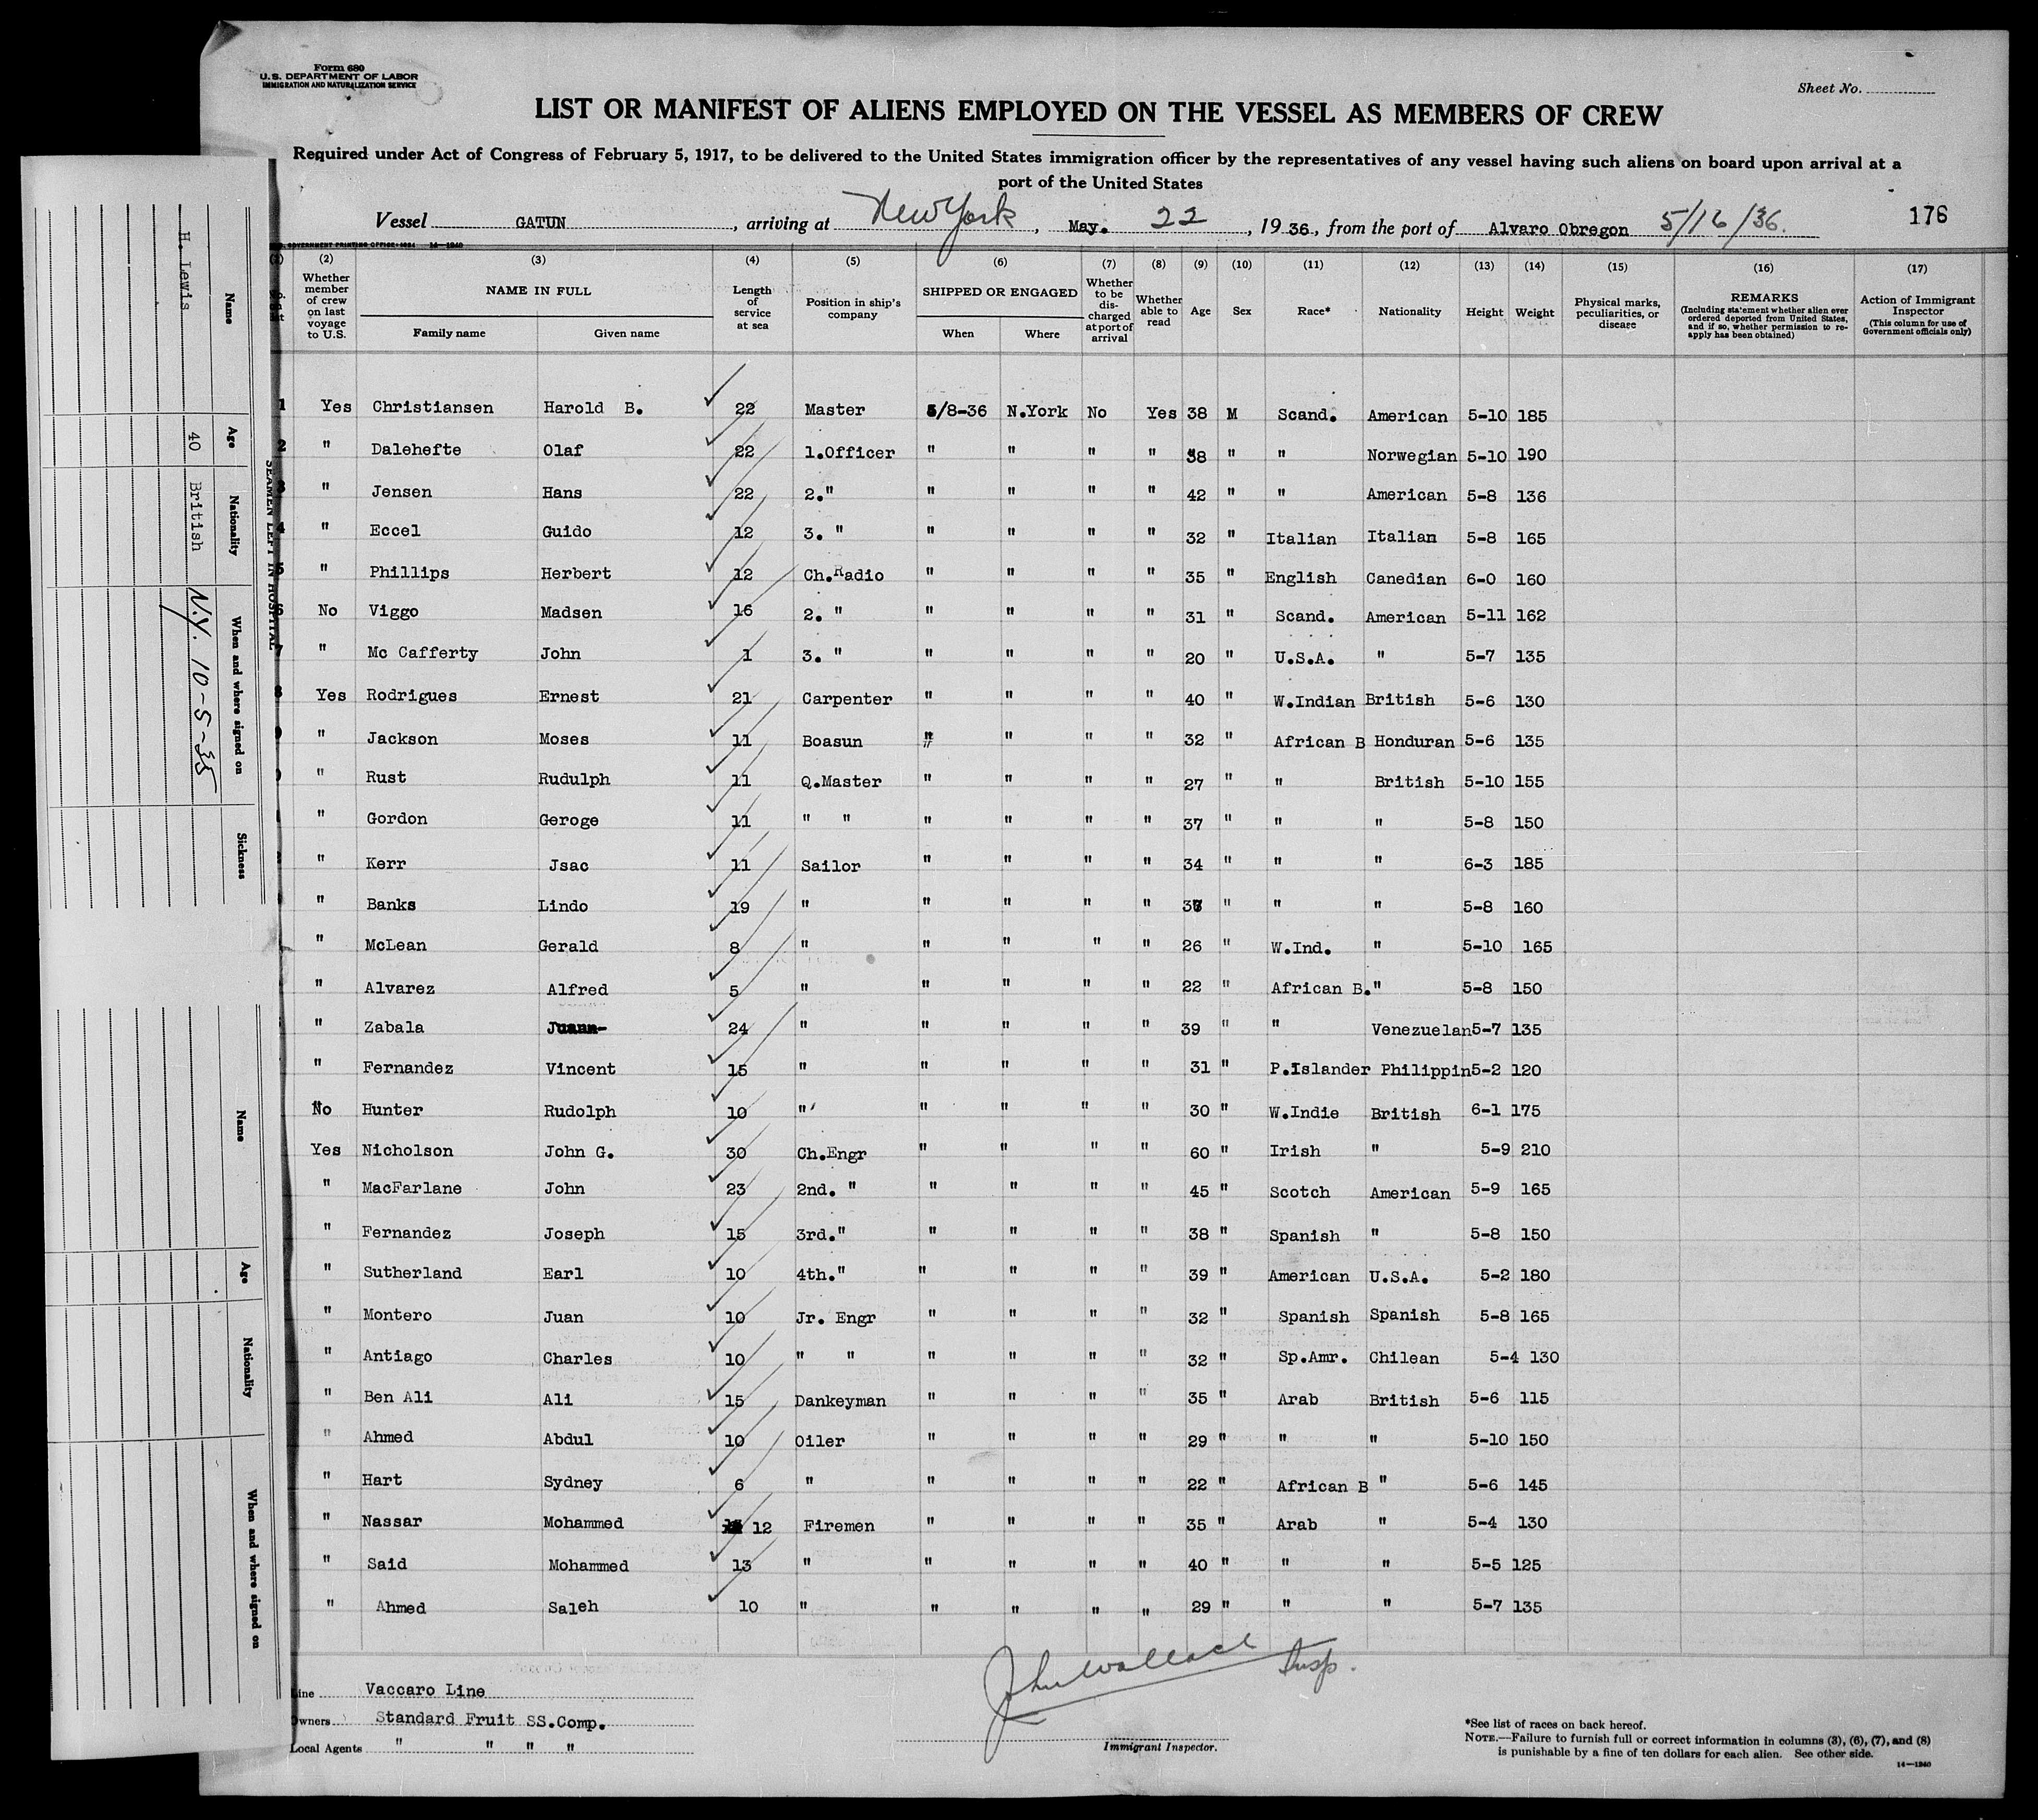 Form 680
U.S. DEPARTMENT OF LABOR
IMMIGRATION AND NATURALIZATION SERVICE
Sheet No.
LIST OR MANIFEST OF ALIENS EMPLOYED ON THE VESSEL AS MEMBERS OF CREW
Required under Act of Congress of February 5, 1917, to be delivered to the United States immigration officer by the representatives of any vessel having such aliens on board upon arrival at a
port of the United States
Vessel GATUN, arriving at New York, May. 22, 1936, from the port of Alvaro Obregon 5/16/36. 176
GOVERNMENT PRINTING OFFICE: 1934 14—1240
(2) (3) (4) (5) (6) (7) (8) (9) (10) (11) (12) (13) (14) (15) (16) (17)
Whether member of crew on last voyage to U.S. NAME IN FULL Family name Given name Length of service at sea Position in ship's company SHIPPED OR ENGAGED When Where Whether to be discharged at port of arrival Whether able to read Age Sex Race* Nationality Height Weight Physical marks, peculiarities, or disease REMARKS (Including statement whether alien ever ordered deported from United States, and if so, whether permission to re-apply has been obtained) Action of Immigrant Inspector (This column for use of Government officials only)
1 Yes Christiansen Harold B. 22 Master 5/8-36 N.York No Yes 38 M Scand. American 5-10 185
2 " Dalehefte Olaf 22 1.Officer " " " " 38 " " Norwegian 5-10 190
3 " Jensen Hans 22 2." " " " " 42 " " American 5-8 136
4 " Eccel Guido 12 3. " " " " " 32 " Italian Italian 5-8 165
5 " Phillips Herbert 12 Ch.Radio " " " " 35 " English Canedian 6-0 160
6 No Viggo Madsen 16 2. " " " " " 31 " Scand. American 5-11 162
7 " Mc Cafferty John 1 3. " " " " " 20 " U.S.A. " 5-7 135
8 Yes Rodrigues Ernest 21 Carpenter " " " " 40 " W.Indian British 5-6 130
9 " Jackson Moses 11 Boasun " " " " 32 " African B Honduran 5-6 135
" Rust Rudulph 11 Q.Master " " " " 27 " " British 5-10 155
" Gordon Geroge 11 " " " " " " 37 " " " 5-8 150
" Kerr Jsac 11 Sailor " " " " 34 " " " 6-3 185
" Banks Lindo 19 " " " " " " " " 5-8 160
" McLean Gerald 8 " " " " " 26 " W.Ind. " 5-10 165
" Alvarez Alfred 5 " " " " " 22 " African B. " 5-8 150
" Zabala Juann- 24 " " " " " 39 " " Venezuelan 5-7 135
" Fernandez Vincent 15 " " " " " 31 " P.Islander Philippin 5-2 120
No Hunter Rudolph 10 " " " " " 30 " W.Indie British 6-1 175
Yes Nicholson John G. 30 Ch.Engr " " " " 60 " Irish " 5-9 210
" MacFarlane John 23 2nd. " " " " " 45 " Scotch American 5-9 165
" Fernandez Joseph 15 3rd." " " " " 38 " Spanish " 5-8 150
" Sutherland Earl 10 4th." " " " " 39 " American U.S.A. 5-2 180
" Montero Juan 10 Jr. Engr " " " " 32 " Spanish Spanish 5-8 165
" Antiago Charles 10 " " " " " " 32 " Sp.Amr. Chilean 5-4 130
" Ben Ali Ali 15 Dankeyman " " " " 35 " Arab British 5-6 115
" Ahmed Abdul 10 Oiler " " " " 29 " " " 5-10 150
" Hart Sydney 6 " " " " " 22 " African B " 5-6 145
" Nassar Mohammed 12 Firemen " " " " 35 " Arab " 5-4 130
" Said Mohammed 13 " " " " " 40 " " " 5-5 125
" Ahmed Saleh 10 " " " " " 29 " " " 5-7 135
John Wallace Insp.
Immigrant Inspector.
Line Vaccaro Line
Owners Standard Fruit SS.Comp.
Local Agents " " " "
*See list of races on back hereof.
NOTE.—Failure to furnish full or correct information in columns (3), (6), (7), and (8)
is punishable by a fine of ten dollars for each alien. See other side.
14—1240
SEAMEN LEFT IN HOSPITAL
Name Age Nationality When and where signed on Sickness
H. Lewis 40 British N.Y. 10-5-35
Name Age Nationality When and where signed on